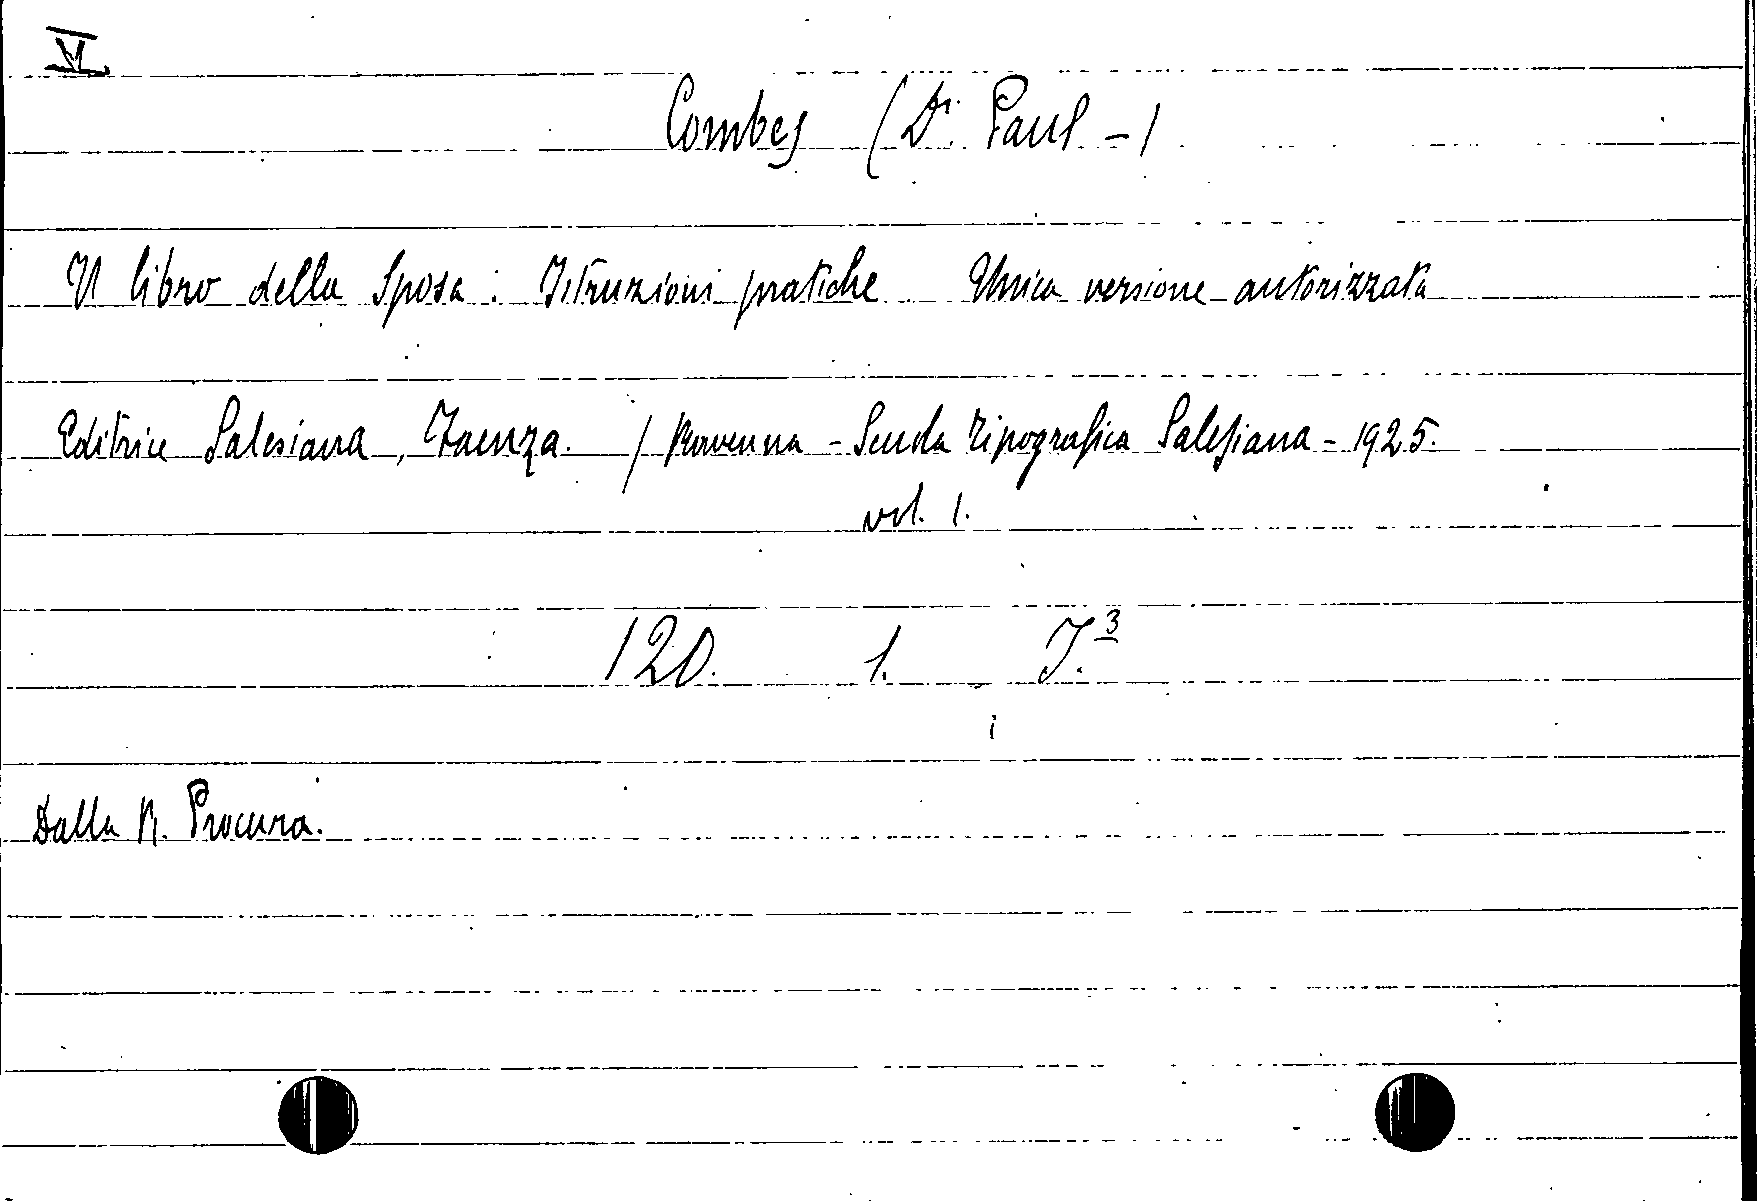 VI
Combes (Dr. Paul -)
Il libro della Sposa: Istruzioni pratiche Unica versione autorizzata
Editrice Salesiana, Faenza. / Ravenna - Scuola Tipografica Salesiana - 1925.
vol. 1.
120. 1. I.3
Dalla R. Procura.